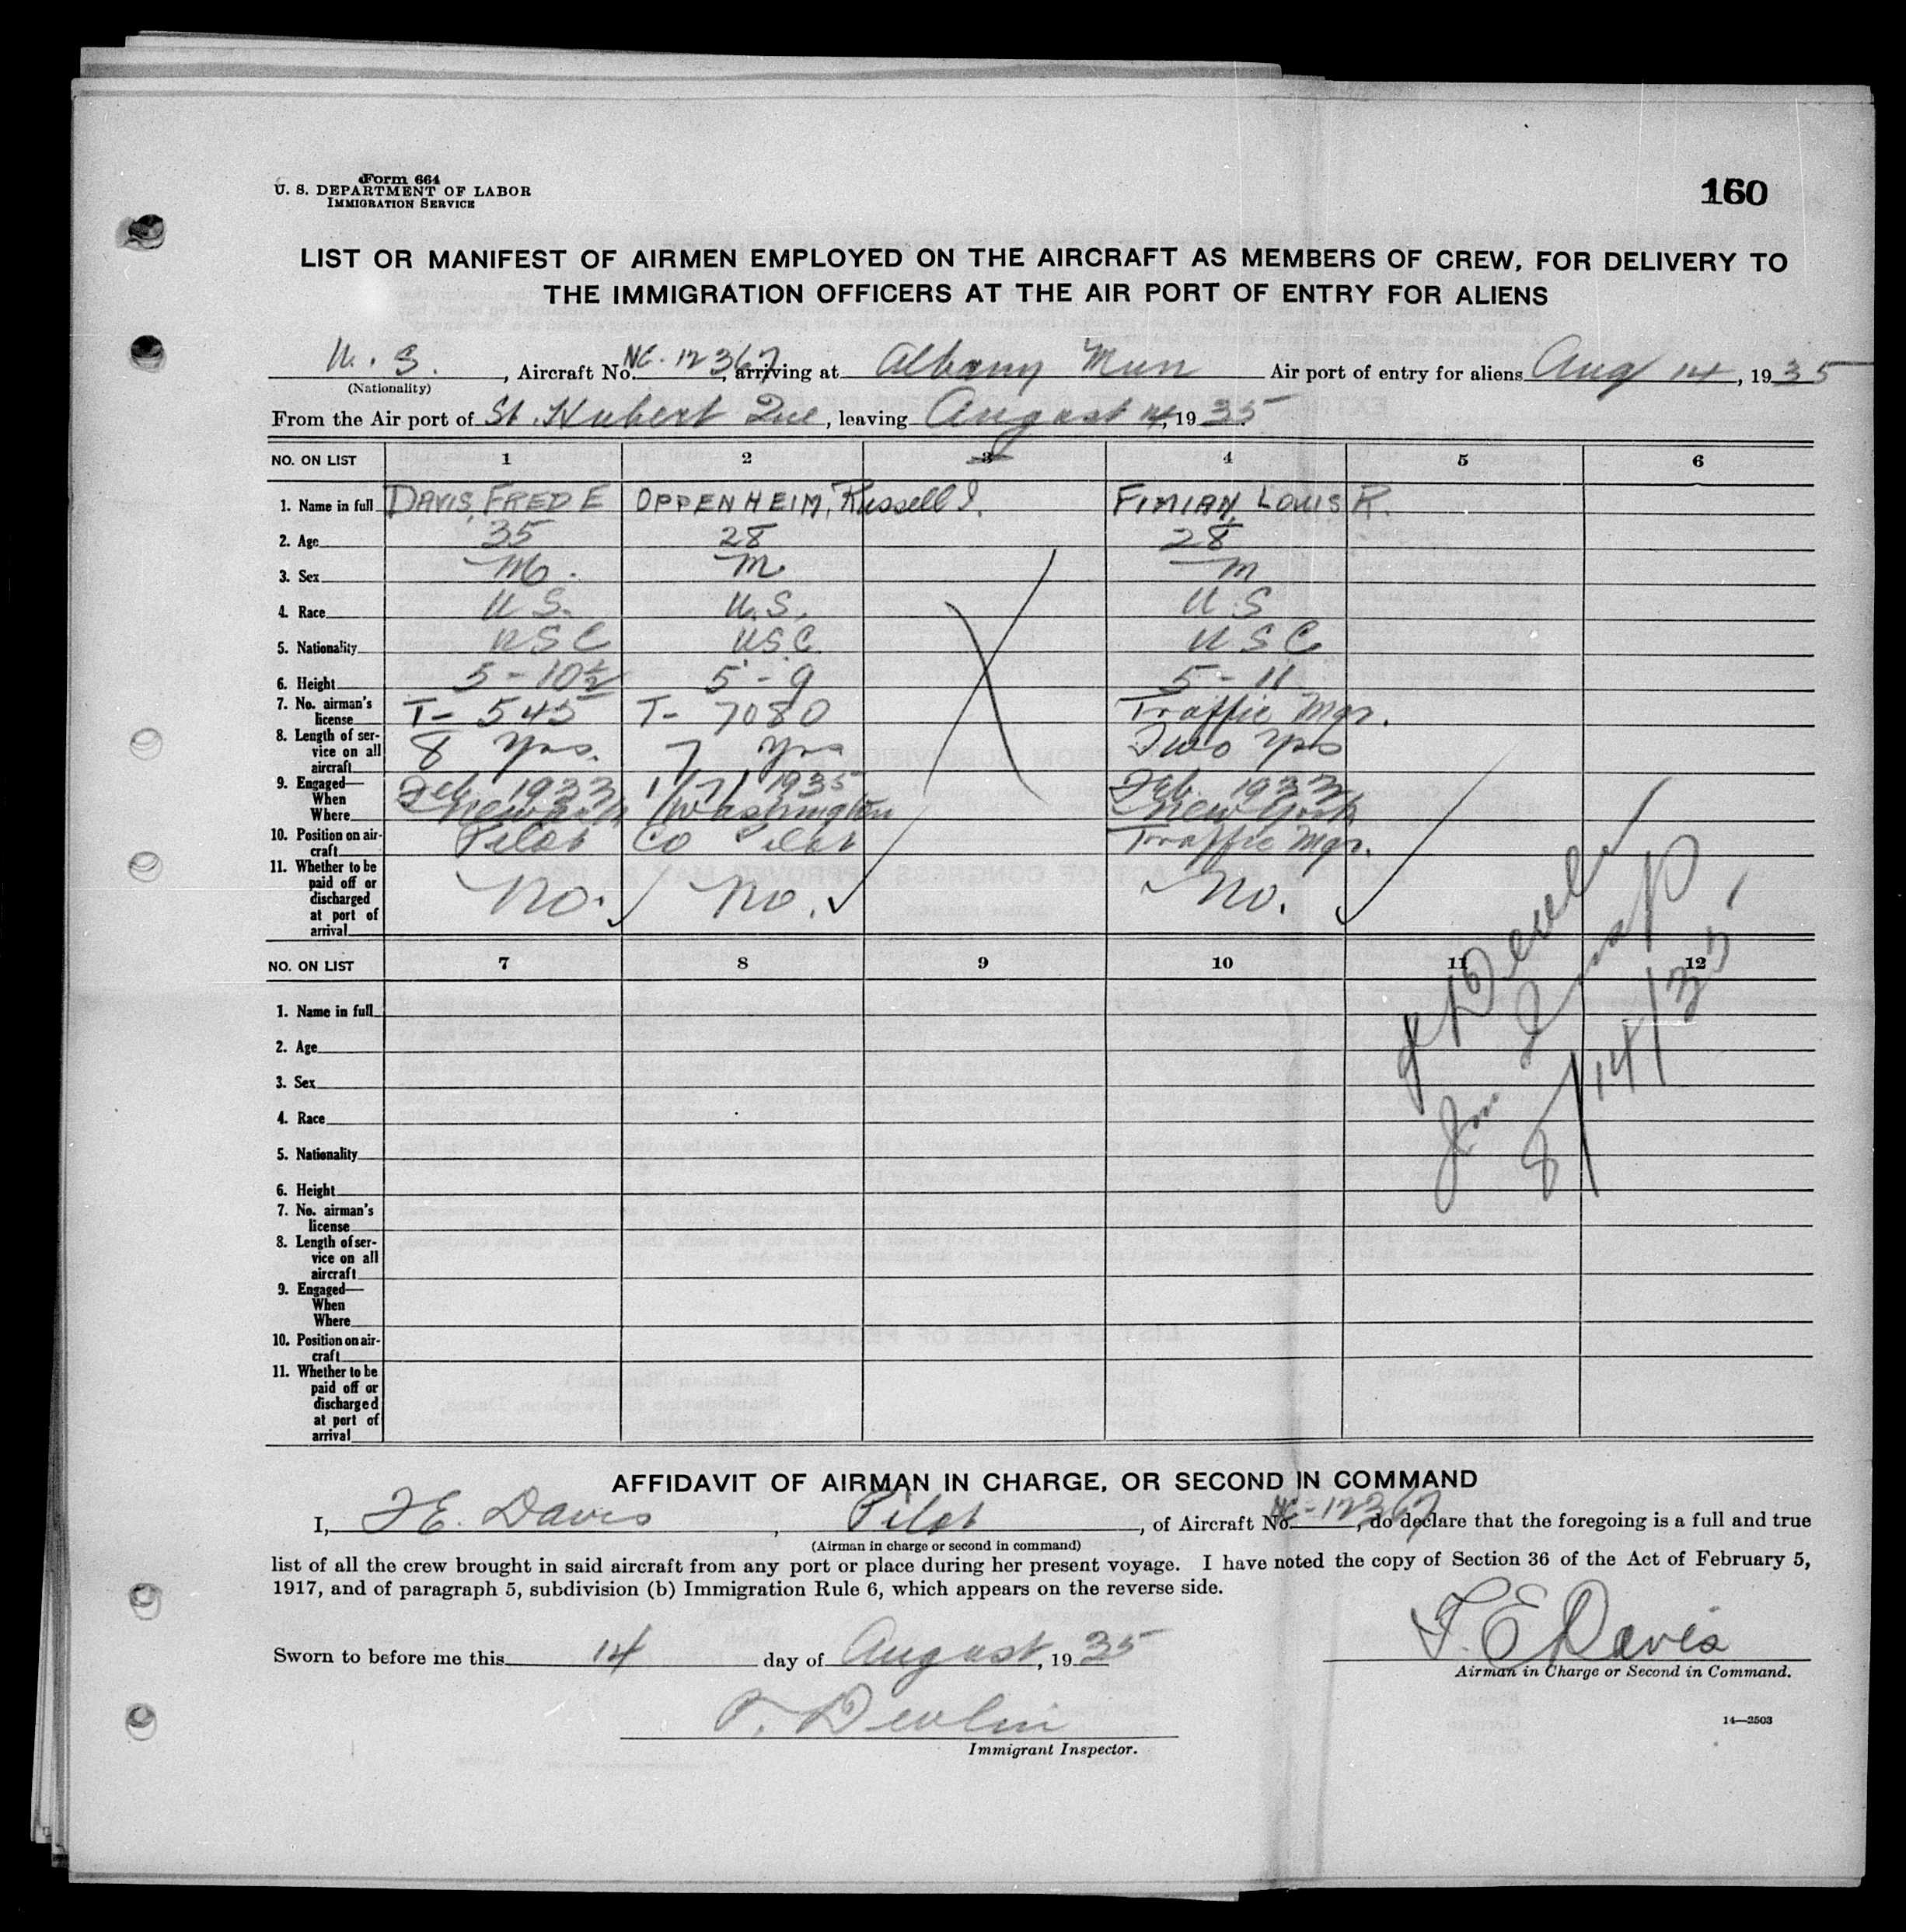 Form 664
U. S. DEPARTMENT OF LABOR
IMMIGRATION SERVICE
160
LIST OR MANIFEST OF AIRMEN EMPLOYED ON THE AIRCRAFT AS MEMBERS OF CREW, FOR DELIVERY TO
THE IMMIGRATION OFFICERS AT THE AIR PORT OF ENTRY FOR ALIENS
U. S. , Aircraft No. NC-12367, arriving at Albany Mun Air port of entry for aliens Aug 14, 1935
(Nationality)
From the Air port of St. Hubert Que, leaving August 14, 1935
NO. ON LIST 1 2 3 4 5 6
1. Name in full DAVIS, FRED E OPPENHEIM, Russell I. FIMIAN, LOUIS R.
2. Age 35 28 28
3. Sex M. M. M
4. Race U.S. U.S. U.S
5. Nationality USC USC. USC.
6. Height 5-10½ 5-9 5-11
7. No. airman's license T-545 T-7080 Traffic Mgr.
8. Length of service on all aircraft 8 Yrs. 7 Yrs Two Yrs
9. Engaged—
When Feb. 1933 1/7/1935 Feb. 1933
Where Newark Washington New York
10. Position on aircraft Pilot Co Pilot Traffic Mgr.
11. Whether to be paid off or discharged at port of arrival No. No. No.
NO. ON LIST 7 8 9 10 11 12
1. Name in full
2. Age
3. Sex
4. Race
5. Nationality
6. Height
7. No. airman's license
8. Length of service on all aircraft
9. Engaged—
When
Where
10. Position on aircraft
11. Whether to be paid off or discharged at port of arrival
Devlin
Imm Insp.
8/14/35
AFFIDAVIT OF AIRMAN IN CHARGE, OR SECOND IN COMMAND
I, F E. Davis, Pilot, of Aircraft No. NC-12367, do declare that the foregoing is a full and true
(Airman in charge or second in command)
list of all the crew brought in said aircraft from any port or place during her present voyage. I have noted the copy of Section 36 of the Act of February 5,
1917, and of paragraph 5, subdivision (b) Immigration Rule 6, which appears on the reverse side.
F. E Davis
Sworn to before me this 14 day of August, 1935
Airman in Charge or Second in Command.
Devlin
14—2503
Immigrant Inspector.